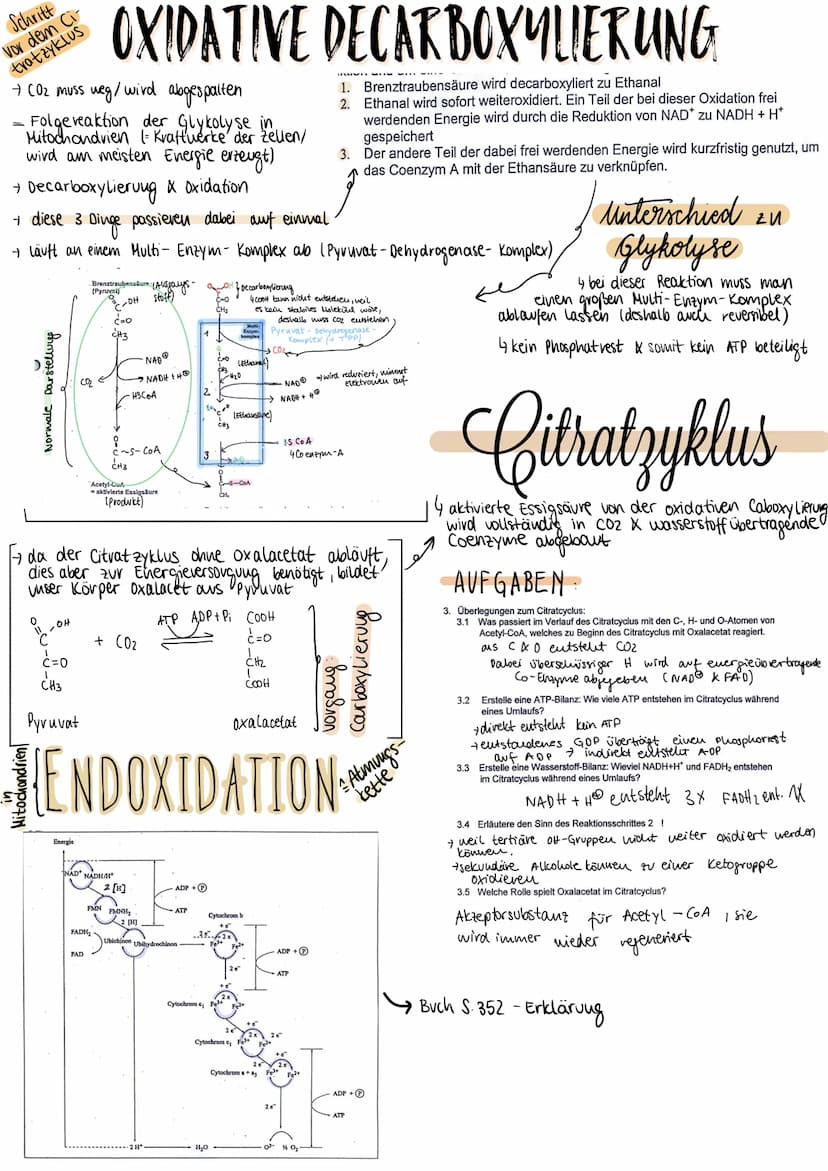 Schritt
vor dem Ci-
tratzyklus
OXIDATIVE DECARBOXYLIERUNG
→ CO2 muss weg/ wird abgespalten
= Folgereaktion der Glykolyse in
Mitochondrien (= Kraftwerke der Zellen/
wird am meisten Energie erzeugt)
→ Decarboxylierung & Oxidation
→ diese 3 Dinge passieren dabei auf einmal
→ läuft an einem Multi-Enzym-Komplex ab (Pyruvat-Dehydrogenase-Komplex)
1. Brenztraubensäure wird decarboxyliert zu Ethanal
2. Ethanal wird sofort weiteroxidiert. Ein Teil der bei dieser Oxidation frei
werdenden Energie wird durch die Reduktion von NAD+ zu NADH + H+
gespeichert
3. Der andere Teil der dabei frei werdenden Energie wird kurzfristig genutzt, um
das Coenzym A mit der Ethansäure zu verknüpfen.
Unterschied zu
Glykolyse
↳ bei dieser Reaktion muss man
einen großen Multi-Enzym-Komplex
ablaufen lassen (deshalb auch reversibel)
↳ kein Phosphatrest & somit kein ATP beteiligt
Normale Darstellung
Brenztraubensäure (Ausgangs-
(Pyruvat) stoff)
OH
C
C=O
CH3
NAD⊕
CO2
NADH + H⊕
HSCoA
O
C~S-CoA
CH3
Acetyl-CoA
= aktivierte Essigsäure
(Produkt)
OH } Decarboxylierung
↳ COOH kann nicht entstehen, weil
es kein stabiles Molekül wäre,
deshalb muss CO2 entstehen
C=O
CH3
Multi-
Enzym-
komplex
Pyruvat-Dehydrogenase-
Komplex (+ TPP)
1
CO2
(Ethanal)
H2O
NAD⊕ → wird reduziert, nimmt
Elektronen auf
2
NADH + H⊕
(Ethansäure)
CH3
HS CoA
↳ Coenzym-A
3
S-CoA
CH3
Citratzyklus
↳ aktivierte Essigsäure von der oxidativen Caboxylierung
wird vollständig in CO2 & wasserstoffübertragende
Coenzyme abgebaut
→ da der Citratzyklus ohne Oxalacetat abläuft,
dies aber zur Energieversorgung benötigt, bildet
unser Körper Oxalacet aus Pyruvat
O OH
C
C=O
CH3
+ CO2
ATP ADP+Pi
COOH
C=O
CH2
COOH
Pyruvat
Oxalacetat
Vorgang:
Carboxylierung
AUFGABEN:
3. Überlegungen zum Citratcyclus:
3.1 Was passiert im Verlauf des Citratcyclus mit den C-, H- und O-Atomen von
Acetyl-CoA, welches zu Beginn des Citratcyclus mit Oxalacetat reagiert.
aus C & O entsteht CO2
Dabei überschüssiger H wird auf energieübertragende
Co-Enzyme abgegeben (NAD⊕ & FAD)
3.2 Erstelle eine ATP-Bilanz: Wie viele ATP entstehen im Citratcyclus während
eines Umlaufs?
→ direkt entsteht kein ATP
→ entstandenes GDP überträgt einen Phosphorrest
auf ADP → indirekt entsteht ADP
3.3 Erstelle eine Wasserstoff-Bilanz: Wieviel NADH+H+ und FADH2 entstehen
im Citratcyclus während eines Umlaufs?
NADH + H⊕ entsteht 3x FADH2 ent. 1x
3.4 Erläutere den Sinn des Reaktionsschrittes 2 !
→ weil tertiäre OH-Gruppen nicht weiter oxidiert werden
können.
→ sekundäre Alkohole können zu einer Ketogruppe
oxidieren
3.5 Welche Rolle spielt Oxalacetat im Citratcyclus?
Akzeptorsubstanz für Acetyl-CoA, sie
wird immer wieder regeneriert
in
Mitochondrien
ENDOXIDATION
= Atmungs-
kette
Energie
NAD+ NADH/H+
2 [H]
ADP + P
ATP
FMN FMNH2
2 [H]
FADH2
Ubichinon Ubihydrochinon
FAD
Cytochrom b
+ e-
2e- 2x
Fe3+ Fe2+
ADP + P
ATP
2 e-
+ e-
Cytochrom c1 Fe3+ 2x Fe2+
+ e-
2 e- 2x 2 e-
Cytochrom c1 Fe3+ Fe2+
+ e-
2 e- 2x
Cytochrom a + a3 Fe3+ Fe2+
2 e-
ADP + P
ATP
2 H+ H2O O2- ½ O2
→ Buch S. 352 - Erklärung